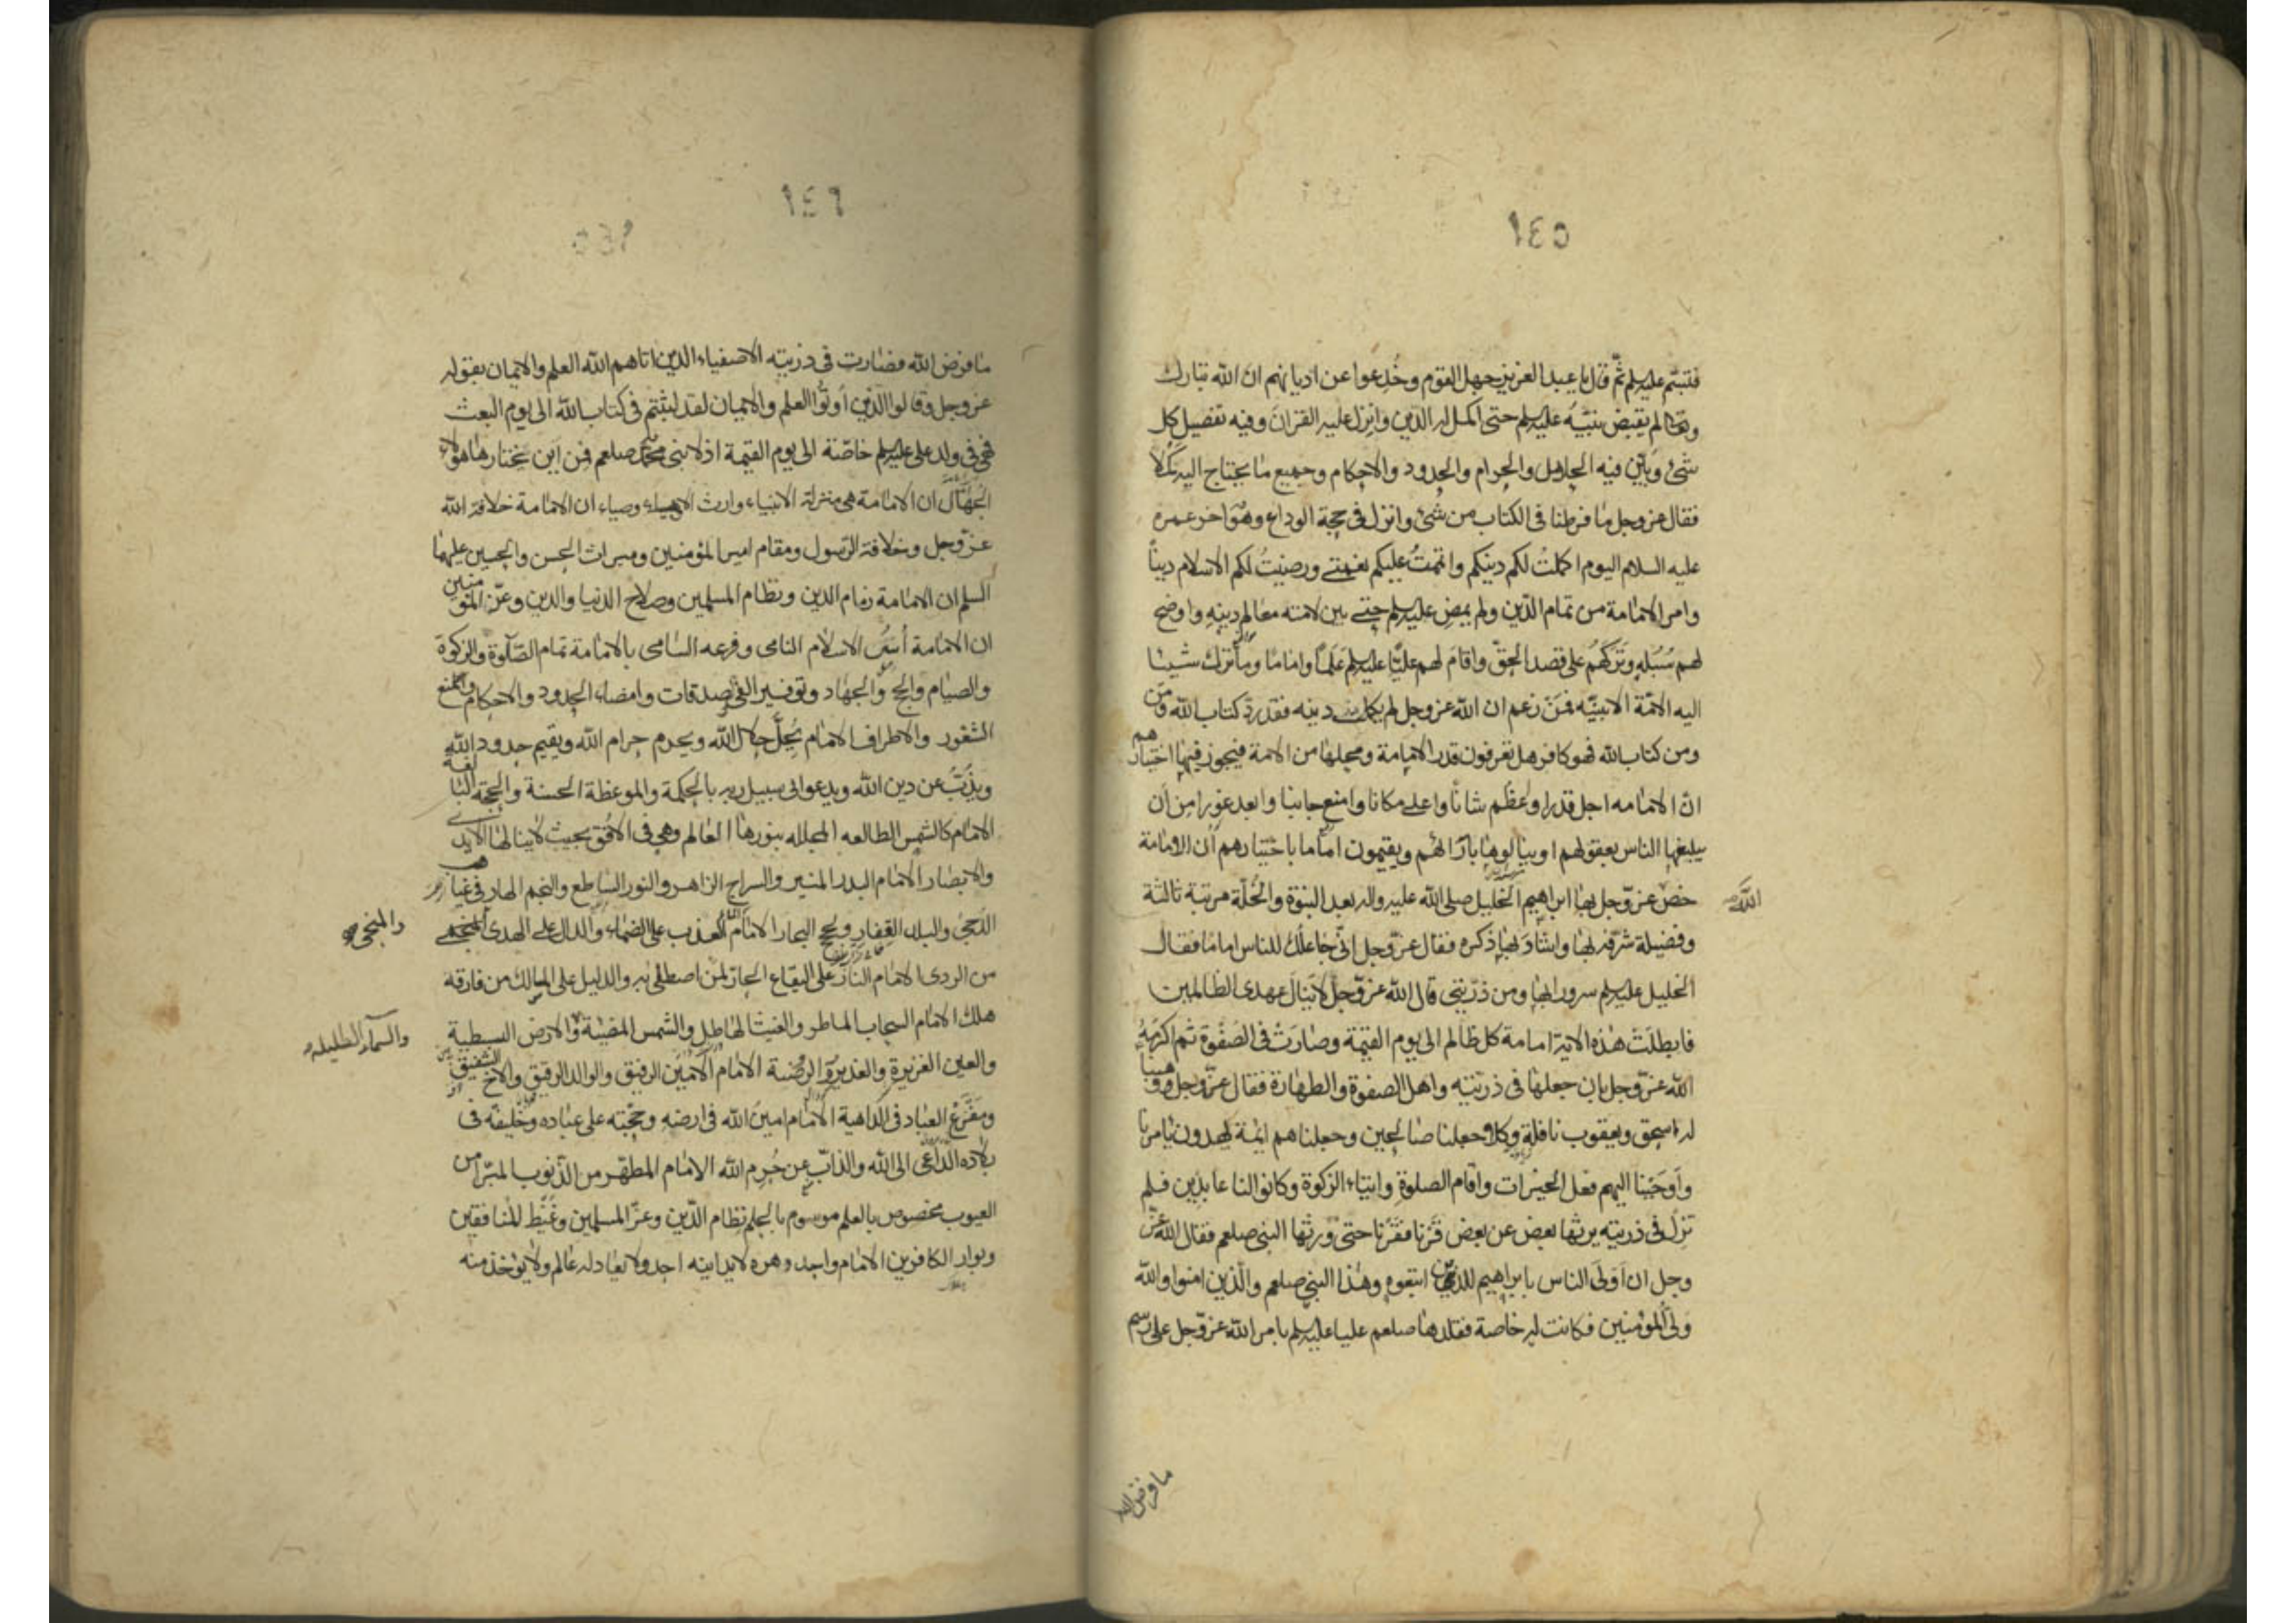 ١٤٥
فتبسم عليه سلم ثم قال يا عبد العزيز جهل القوم وخُدِعوا عن اديانهم ان الله تبارك
وتعالى لم يقبض نبيَّه عليه سلم حتى اكمل له الدين وانزل عليه القرانَ وفيه تفصيل كل
شئ وبَيَّن فيه الحلال والحرام والحدود والاحكام وجميع ما يحتاج اليه كَمَلاً
فقال عز وجل ما فرطنا فى الكتاب من شئ وانزل فى حجة الوداع وهو اخر عمره
عليه السلام اليوم اكملتُ لكم دينكم واتممتُ عليكم نعمتى ورضيتُ لكم الاسلام ديناً
وامر الامامة من تمام الدّين ولم يمضِ عليه سلم حتى بين لامته معالم دينهِ واوضح
لهم سُبُله وتَرَكَهُم على قصد الحقّ واقامَ لهم عليّا عليه سلم عَلَماً واماما وما ترك شيئا
اليه الامّة الا بيّنه فمَنْ زعم ان الله عز وجل لم يكمل دينه فقد ردّ كتاب الله ومَن
ومن كتاب الله فهو كافر هل تعرفون قدر الامامة ومحلها من الامة فيجوز فيها اختيارهم
انّ الامامه اجل قدرا وعظم شانًا واعلى مكانا وامنع جانبا وابعد غورا من ان
يبلغها الناس بعقولهم او ينالوها بآرائهم ويقيمون اماما باختيارهم ان الامامة
خصّ عزّ وجل بها ابراهيم الخليل صلى الله عليه واله بعد النبوة والخُلّة مرتبة ثالثة
الله
وفضيلة شرّفه بها واشادَ بها ذكره فقال عزّ وجل انّى جاعلُكَ للناس امامًا فقال
الخليل عليه سلم سرورا بها ومن ذرّيتى قال الله عزّ وجلّ لا ينال عهدى الظالمين
فابطلَت هذه الاية امامة كل ظالم الى يوم القيٰمة وصارَتْ فى الصَفْوة ثم اكرمهُ
الله عزّ وجل بان جعلها فى ذريّته واهل الصفوة والطهارة فقال عزّ وجل ووهبنا
له اسحق ويعقوب نافلة وكلا جعلنا صالحين وجعلناهم ايمة يهدون بامرنا
واَوحَيْنا اليهم فعل الخيرات واقام الصلوة وايتاء الزكوة وكانوا لنا عابدين فلم
تزل فى ذريته يرثها بعض عن بعض قَرْنا فقَرْنا حتى ورثها النبى صلعم فقال الله عزّ
وجل ان اَولَى الناس بابراهيم للذين اتبعوه وهذا النبي صلعم والّذين امنوا والله
ولى المؤمنين فكانت له خاصة فقلدها صلعم عليا عليه سلم بامر الله عزّ وجل على رسم
ما فرض الله
١٤٦
ما فرض الله فصارت فى ذريته الاصفياء الذين اتاهم الله العلم والايمان بقوله
عز وجل وقالوا الّذين أوتُوا العلم والايمان لقد لبثتم فى كتاب الله الى يوم البعث
فهى فى ولد على عليه سلم خاصّة الى يوم القيمة اذ لا نبى بعد محمد صلعم فمن اين يختار هاهولاء
الجُهّال ان الامامة هى منزلة الانبياء وارث الاوصياء ان الامامة خلافة الله
عزّ وجل وخلافة الرّسول ومقام امير المؤمنين وميراث الحسن والحسين عليهما
السلم ان الامامة زمام الدين ونظام المسلمين وصلاح الدنيا والدين وعزّ المؤمنين
ان الامامة أسُّ الاسلام النامى وفرعه السّامى بالامامة تمام الصّلوة والزكوة
والصيام والحج والجهاد وتوفير الفئ والصدقات وامضاء الحدود والاحكام ومنع
الثغور والاطراف الامام يُحِلُّ حلال الله ويحرم حرام الله ويقيم حدود الله
ويذُبُّ عن دين الله ويدعوالى سبيل ربه بالحكمة والموعظة الحسنة والحجة البالغة
الامام كالشمس الطالعه المجلله بنورها العالم وهى فى الافق بحيث لا ينالها الايدى
والابصار الامام البدر المنير والسراج الزاهر والنور الساطع والنجم الهادى فى غياهب
الدّجىٰ والبلد القِفار ولجج البحار الامام الماء العذب على الضماء والدال على الهدى
والمنجى
من الردى الامام النار على اليفاع الحارّ لمن اصطلى به والدليل على المسالك من فارقه
هلك الامام السحاب الماطر والغيث الهاطل والشمس المضيئة والارض البسيطة
والسماء الظليله
والعين الغزيرة والغدير والروضة الامام الامين الرفيق والوالد الرقيق والاخ الشفيق
ومَفْزَعُ العباد فى الداهية الامام امينُ الله فى ارضه وحجّته على عباده وخليفته فى
بلاده الداعى الى الله والذابّ عن حُرم الله الامام المطهّر من الذنوب المبّرا من
العيوب مخصوص بالعلم موسوم بالحلم نظام الدّين وعزّ المسلمين وغَيْظ للمنافقين
وبوار الكافرين الامام واحد دهره لا يدانيه احد ولا يعادله عالم ولا يوخذ منه